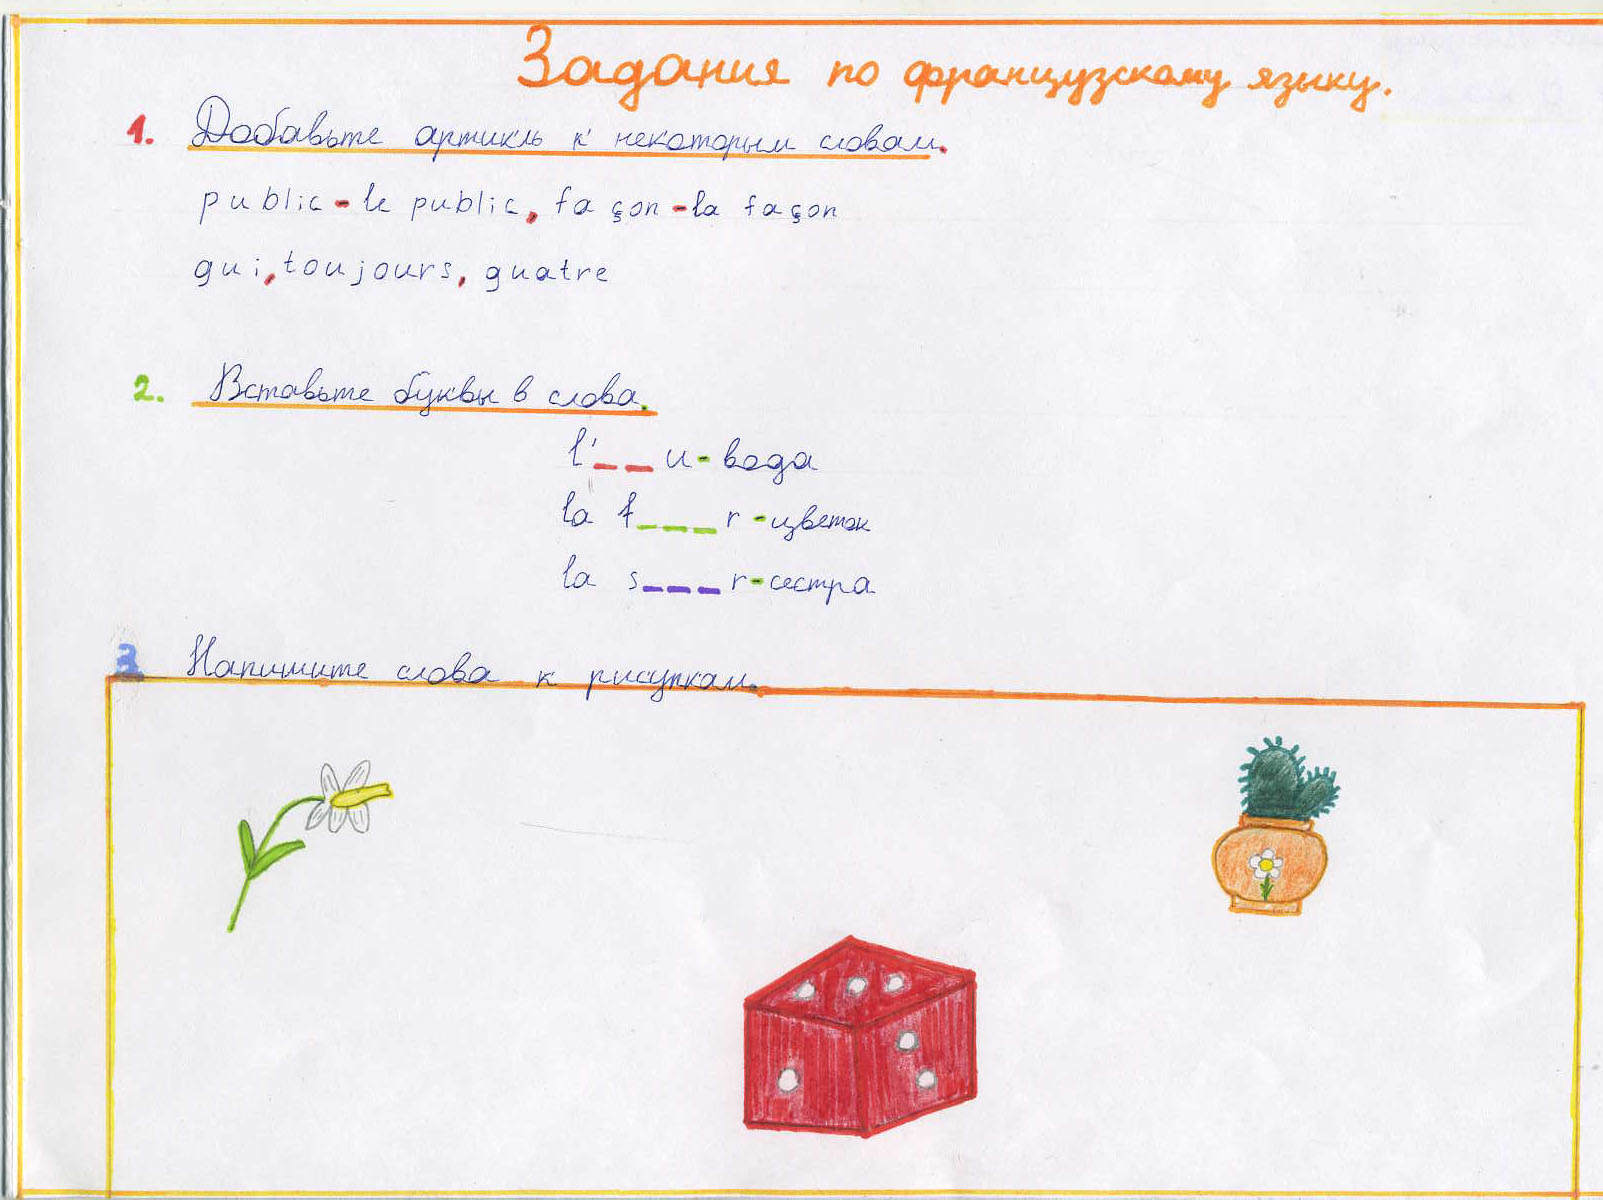 Задания по французскому языку.
1. Добавьте артикль к некоторым словам.
public - le public, façon - la façon
qui, toujours, quatre
2. Вставьте буквы в слова.
l'_ _ u - вода
la f_ _ _ r - цветок
la s_ _ _ r - сестра
3 Напишите слова к рисункам.